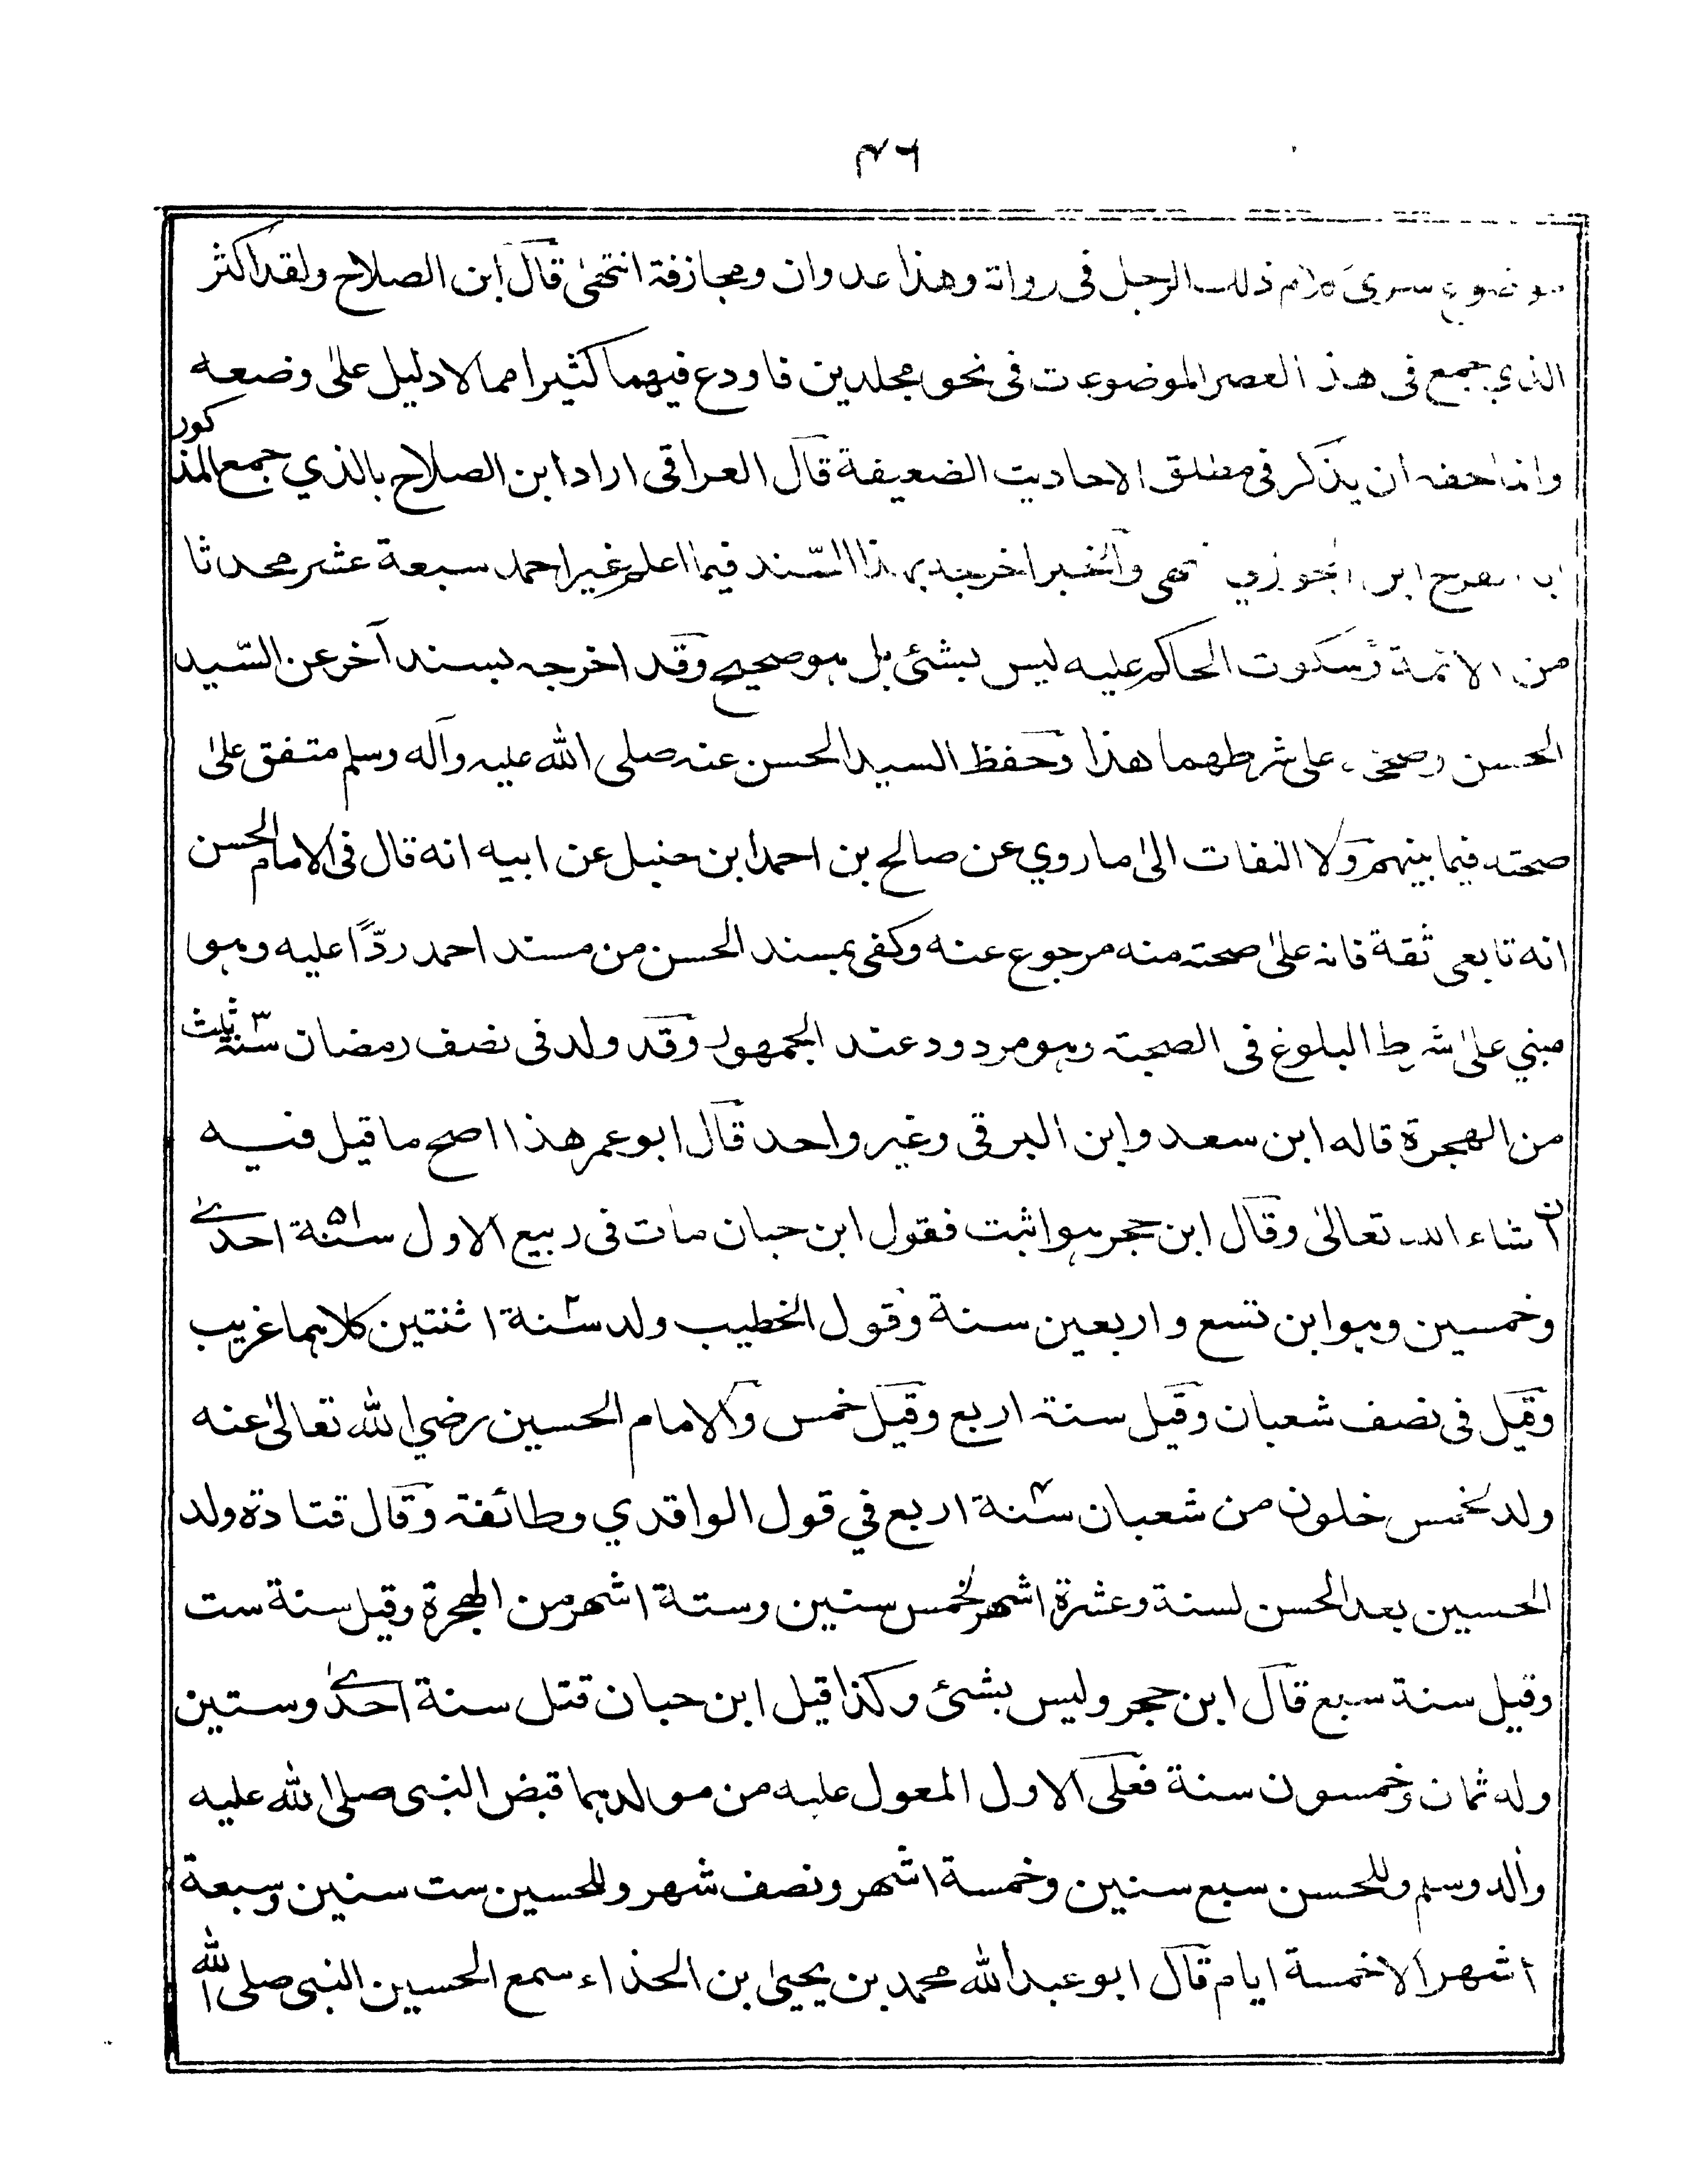 ٤٦
موضوع سوى كلام ذلك الرجل فى رواته وهذا عدوان ومجازفة انتهىٰ قال ابن الصلاح ولقد اكثر
الذي جمع فى هذا العصر الموضوعات فى نحو مجلدين فاودع فيهما كثيرا مما لادليل علىٰ وضعه
وانما حقه ان يذكر فى مطلق الاحاديث الضعيفة قال العراقى اراد ابن الصلاح بالذي جمع المذكور
ابا الفرج ابن الجوزي انتهى والخبر اخرجه بهذا السّند فيما اعلم غير احمد سبعة عشر محدثا
من الائمة وسكوت الحاكم عليه ليس بشئ بل هو صحيح وقد اخرجه بسند آخر عن السّيد
الحسن وصححه على شرطهما هذا وحفظ السيد الحسن عنه صلى الله عليه وآله وسلم متفق علىٰ
صحته فيما بينهم ولا التفات الىٰ ما روي عن صالح بن احمد ابن حنبل عن ابيه انه قال فى الامام الحسن
انه تابعى ثقة فانه علىٰ صحته منه مرجوع عنه وكفى بمسند الحسن من مسند احمد ردًّا عليه وهو
مبني علىٰ شرط البلوغ فى الصحبة وهو مردود عند الجمهور وقد ولد فى نصف رمضان سنة ٣ ثلث
من الهجرة قاله ابن سعد وابن البرقى وغير واحد قال ابو عمر هذا اصح ما قيل فيه
ان شاء الله تعالىٰ وقال ابن حجر هو اثبت فقول ابن حبان مات فى ربيع الاول سنة ٥١ احدىٰ
وخمسين وهو ابن تسع واربعين سنة وقول الخطيب ولد سنة ٢ اثنتين كلاهما غريب
وقيل فى نصف شعبان وقيل سنة اربع وقيل خمس والامام الحسين رضي الله تعالىٰ عنه
ولد لخمس خلون من شعبان سنة ٤ اربع في قول الواقدي وطائفة وقال قتادة ولد
الحسين بعد الحسن لسنة وعشرة اشهر لخمس سنين وستة اشهر من الهجرة وقيل سنة ست
وقيل سنة سبع قال ابن حجر وليس بشئ وكذا قيل ابن حبان قتل سنة احدىٰ وستين
وله ثمان وخمسون سنة فعلى الاول المعول عليه من مولدهما قبض النبى صلى الله عليه
وآله وسلم وللحسن سبع سنين وخمسة اشهر ونصف شهر وللحسين ست سنين وسبعة
اشهر الا خمسة ايام قال ابو عبد الله محمد بن يحيىٰ بن الحذاء سمع الحسين النبى صلى الله